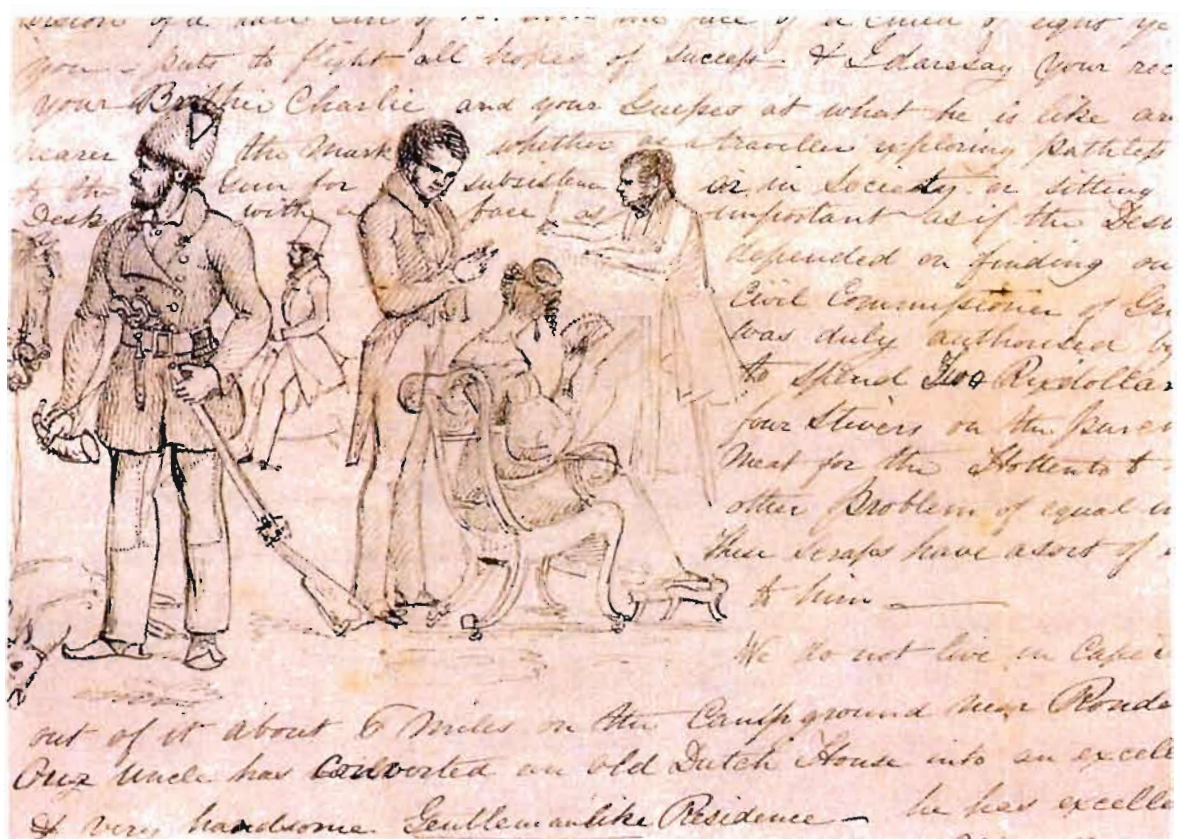 of a of it with the face of a child of eight ye
you - puts to flight all hopes of success - & I daresay your rec
your Brother Charlie and your Guesses at what he is like are
nearer the Mark whether as a traveller exploring pathless
to the Gun for subsistence or in Society or sitting
Desk with a face as important as if the Des
depended on finding ou
Civil Commissioner of Gr
was duly authorised by
to spend Two Rixdollar
four Stivers on the
Meat for the Hottentots
other Problem of equal
these scraps have a sort of
to him —
We do not live in Cape
out of it about 6 Miles on the Camp ground near Ronde
Our Uncle has converted an old Dutch House into an excell
& very handsome Gentlemanlike Residence — he has excelle